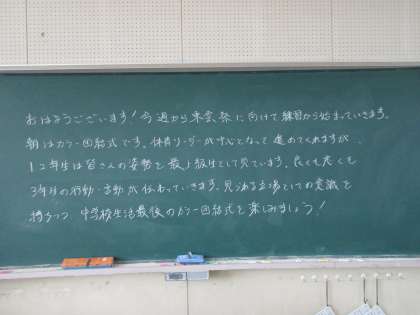 おはようございます!今週から東雲祭に向けて練習から始まっていきます。
朝はカラー団結式です。体育リーダーが中心となって進めてくれますが、
1 2年生は皆さんの姿勢を最上級生として見ています。良くも悪くも
3年生の行動・言動が伝わっていきます。見られる立場としての意識を
持ちつつ 中学校生活最後のカラー団結式を楽しみましょう!